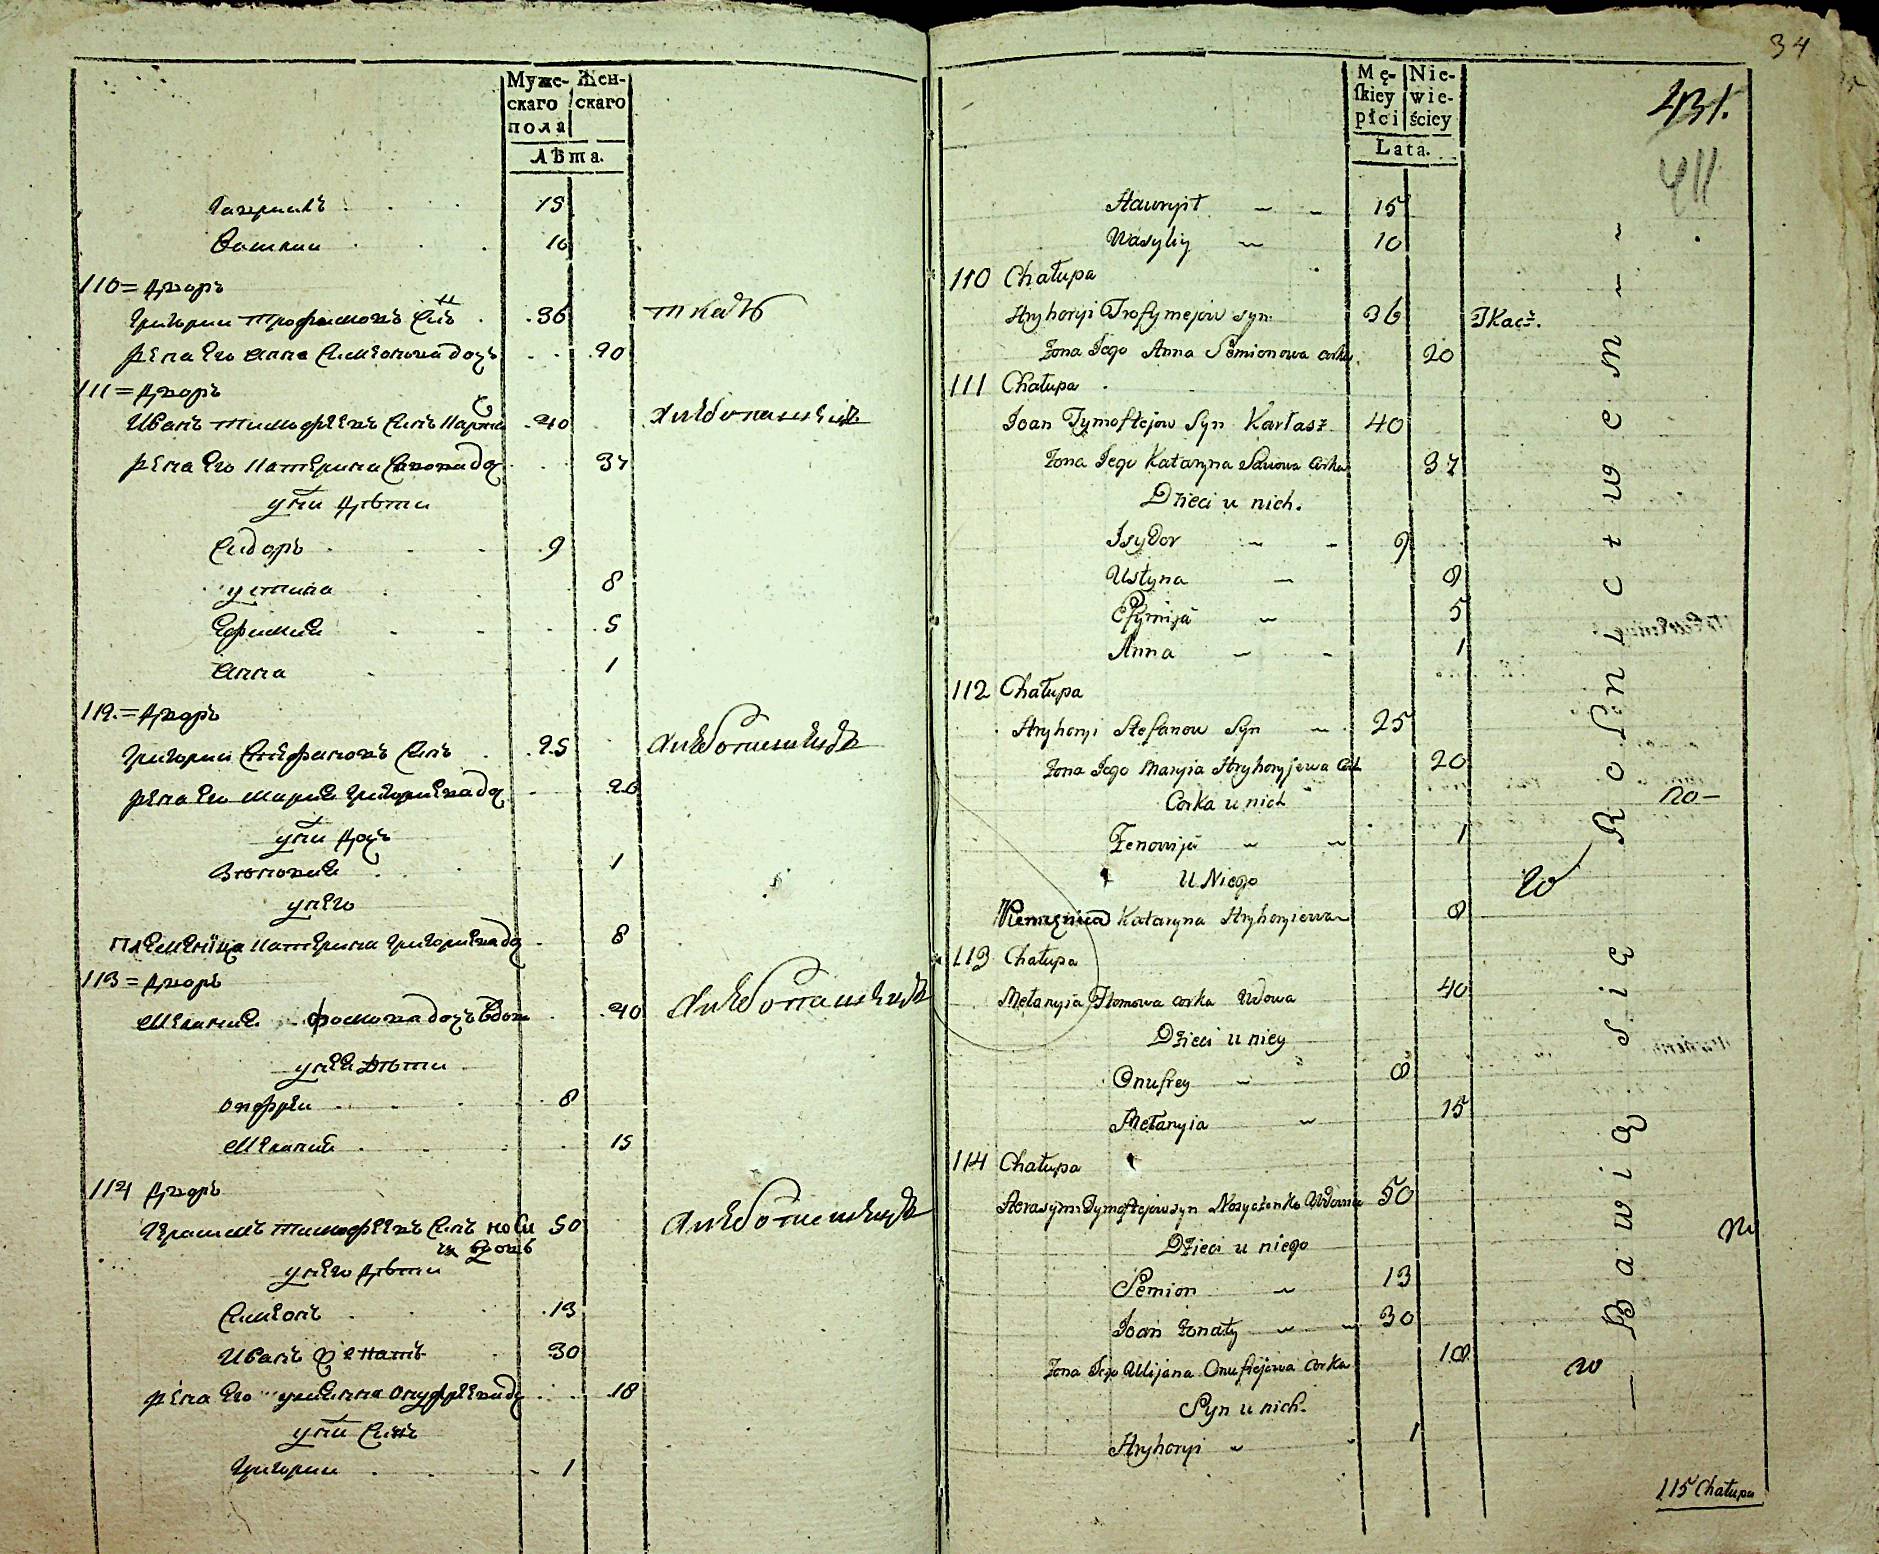 Муже-
скаго
пола
Жен-
скаго
Лѣта.
Гаврилъ 15
Василии 10
110 = Дворъ
Григории Трофимовъ Снъ 36 ткачъ
жена Его Анна Симеонова дочь 20
111 = Дворъ
Иванъ Тимофѣевъ Синъ 40 хлѣбопашецъ
жена Его Катерина Савова доч 37
у ни Дѣти
Сидоръ 9
устина 8
Ефимия 5
Анна 1
112. = Дворъ
Григории Стефановъ Синъ 25 хлѣбопашецъ
жена Его Мария Григориева доч 20
у ни Дочъ
Зеновия 1
у него
племеница Катерина Григориева доч 8
113 = Дворъ
Мелания Фомова дочъ Вдова 40 хлѣбопашецъ
у неи Дѣти
Онофреи 8
Мелания 15
114 Дворъ
Герасимъ Тимофѣевъ Синъ 50 хлѣбопашецъ
у него Дѣти
Симеонъ 13
Иванъ Женатъ 30
жена Его улиянна Онуфрѣева доч 18
у ни Синъ
Григории 1
34
431.
411
Mę-
skiey
płci
Nie-
wie-
ściey
Lata.
Hawryił 15
Wasyliy 10
110 Chałupa
Hryhoryi Trofymejow syn 36 Tkacz.
Żona Jego Anna Semionowa corka 20
111 Chałupa
Joan Tymofiejow Syn Karłasz 40
Żona Jego Kataryna Sawowa corka 37
Dzieci u nich.
Isydor 9
Ustyna 8
Efymija 5
Anna 1
112 Chałupa
Hryhoryi Stefanow Syn 25
Żona Jego Maryia Hryhoryjewa Cor 20
Corka u nich
Zenowija 1
U Niego
Plemięnica Kataryna Hryhoryiewna 8
113 Chałupa
Mełanyia Homowa corka Wdowa 40
Dzieci u niey
Onufrey 8
Mełanyia 15
114 Chałupa
Herasym Tymofiejow syn 50
Dzieci u niego
Semion 13
Joan Żonaty 30
Żona Jego Ulijana Onufrejowa corka 18
Syn u nich.
Hryhoryi 1
Bawią się Rolnictwem
115 Chałupa